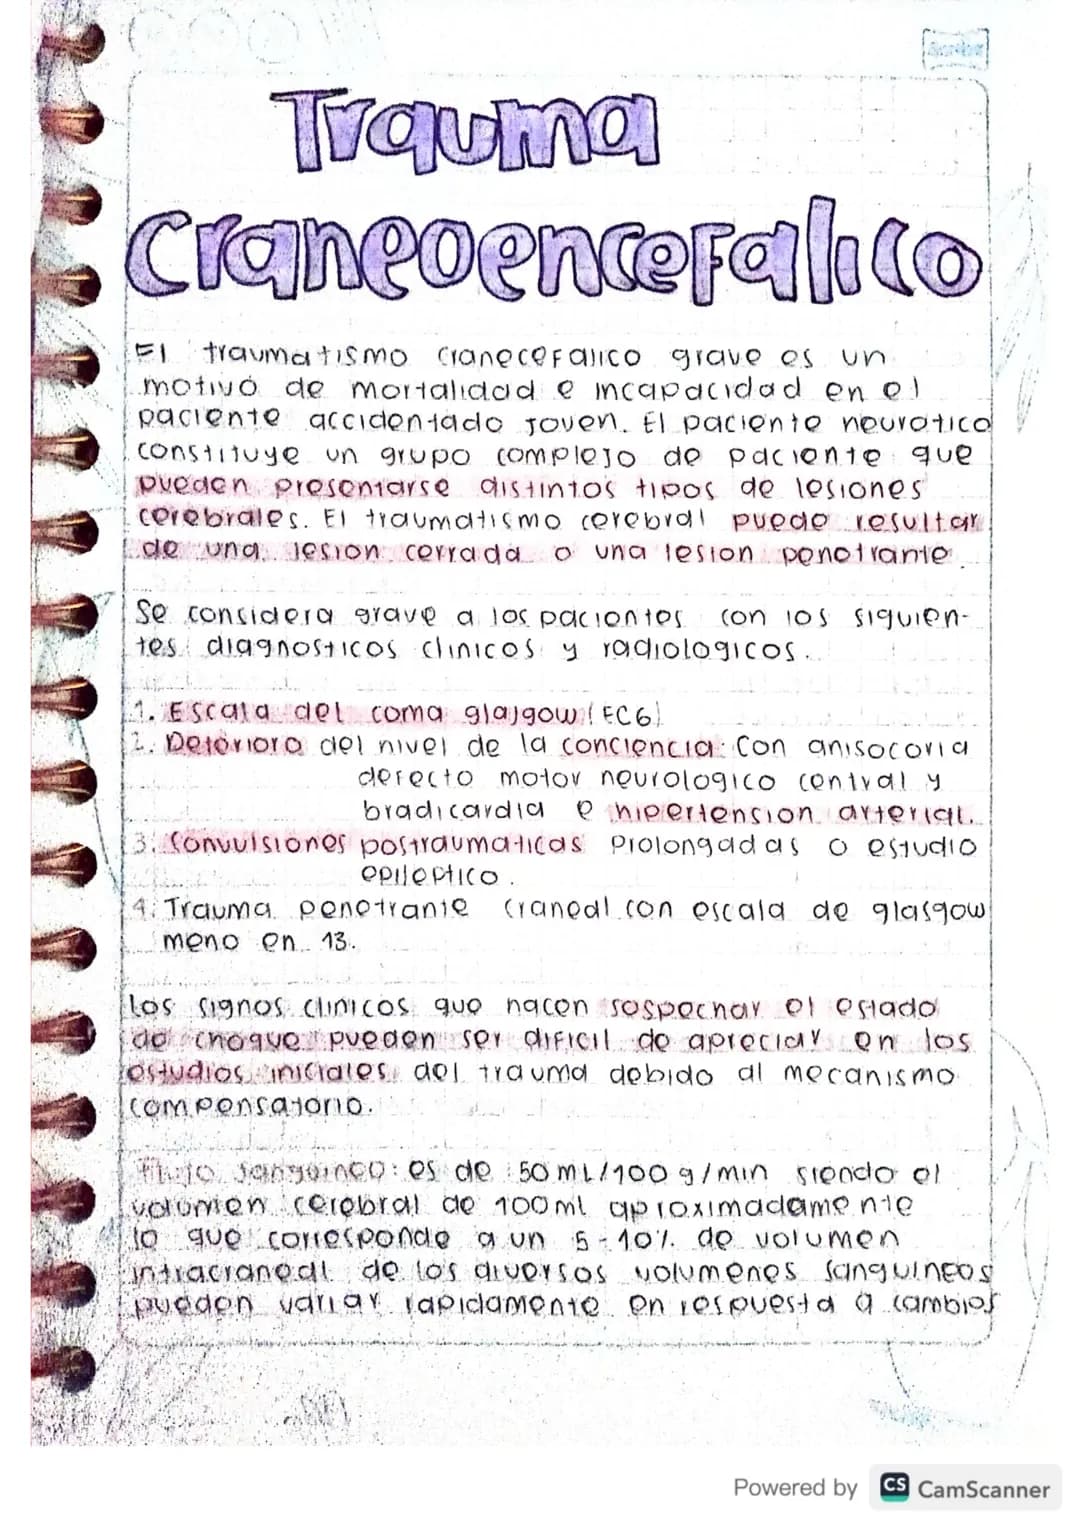 Scribe
Trauma
Craneoencefalico
El traumatismo cranecefalico grave es un
motivo de mortalidad e incapacidad en el
paciente accidentado joven. El paciente neurotico
constituye un grupo complejo de paciente que
pueden presentarse distintos tipos de lesiones
cerebrales. El traumatismo cerebral puede resultar
de una lesion cerrada o una lesion penetrante.
Se considera grave a los pacientes con los siguien-
tes diagnosticos clinicos y radiologicos.
1. Escala del coma glasgow (ECG)
2. Deterioro del nivel de la conciencia: Con anisocoria
defecto motor neurologico central y
bradicardia e hipertension arterial.
3. Convulsiones postraumaticas Prolongadas o estudio
epileptico.
4. Trauma penetrante craneal con escala de glasgow
meno en 13.
Los signos clinicos que hacen sospechar el estado
de choque pueden ser dificil de apreciar en los
estudios iniciales del trauma debido al mecanismo
compensatorio.
Flujo sanguineo: es de 50 ml/100 g/min siendo el
volumen cerebral de 100ml aproximadamente
lo que corresponde a un 5-10% de volumen
intracraneal de los diversos volumenes sanguineos
pueden variar rapidamente en respuesta a cambios
Powered by CS CamScanner